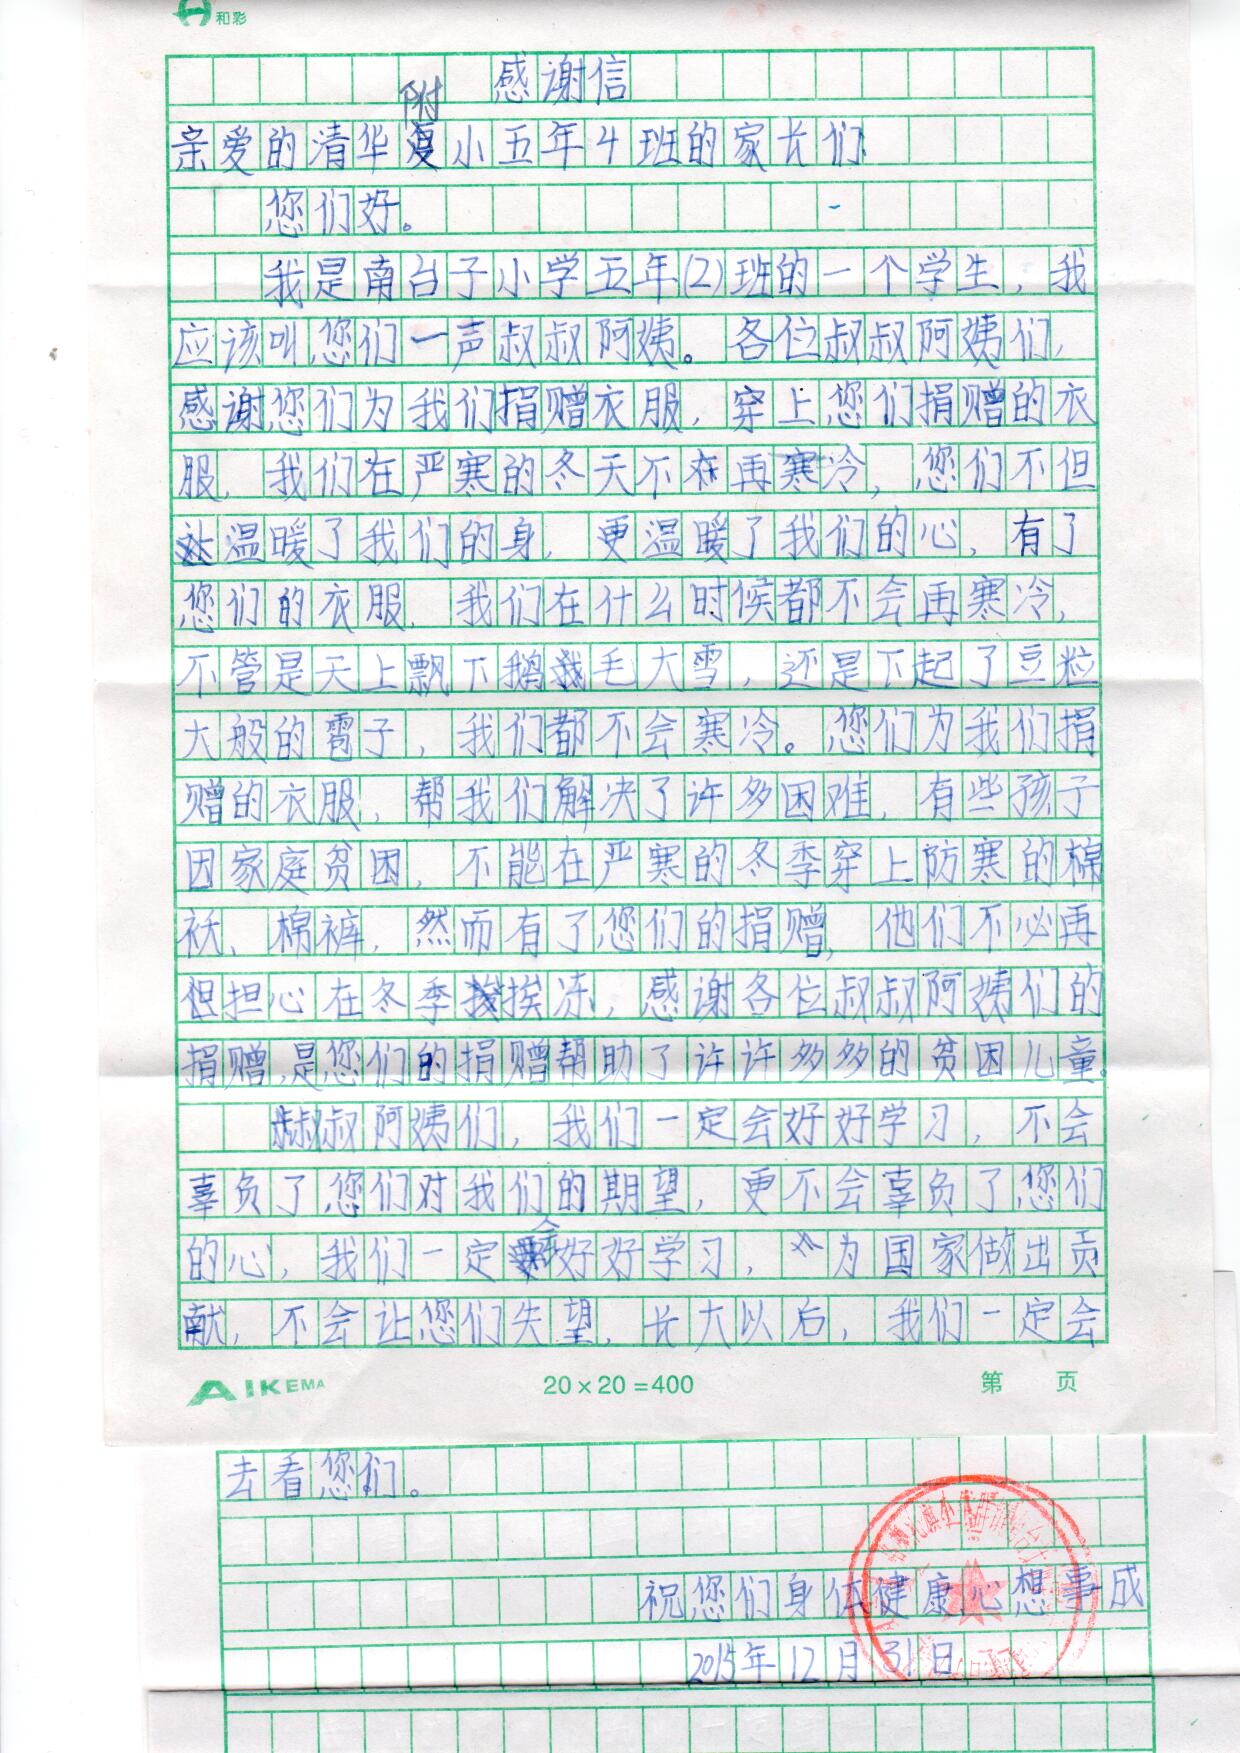 和彩
感谢信
附
亲爱的清华复小五年4班的家长们
您们好。
我是南台子小学五年(2)班的一个学生,我
应该叫您们一声叔叔阿姨。各位叔叔阿姨们,
感谢您们为我们捐赠衣服,穿上您们捐赠的衣
服,我们在严寒的冬天不在再寒冷,您们不但
让温暖了我们的身,更温暖了我们的心,有了
您们的衣服,我们在什么时候都不会再寒冷,
不管是天上飘下鹅毛大雪,还是下起了豆粒
大般的雹子,我们都不会寒冷。您们为我们捐
赠的衣服,帮我们解决了许多困难,有些孩子
因家庭贫困,不能在严寒的冬季穿上防寒的棉
袄、棉裤,然而有了您们的捐赠,他们不必再
但担心在冬季挨冻,感谢各位叔叔阿姨们的
捐赠,是您们的捐赠帮助了许许多多的贫困儿童。
叔叔阿姨们,我们一定会好好学习,不会
辜负了您们对我们的期望,更不会辜负了您们
的心,我们一定会好好学习,为国家做出贡
献,不会让您们失望,长大以后,我们一定会
AIKEMA 20×20=400 第 页
去看您们。
祝您们身体健康心想事成
2015年12月31日